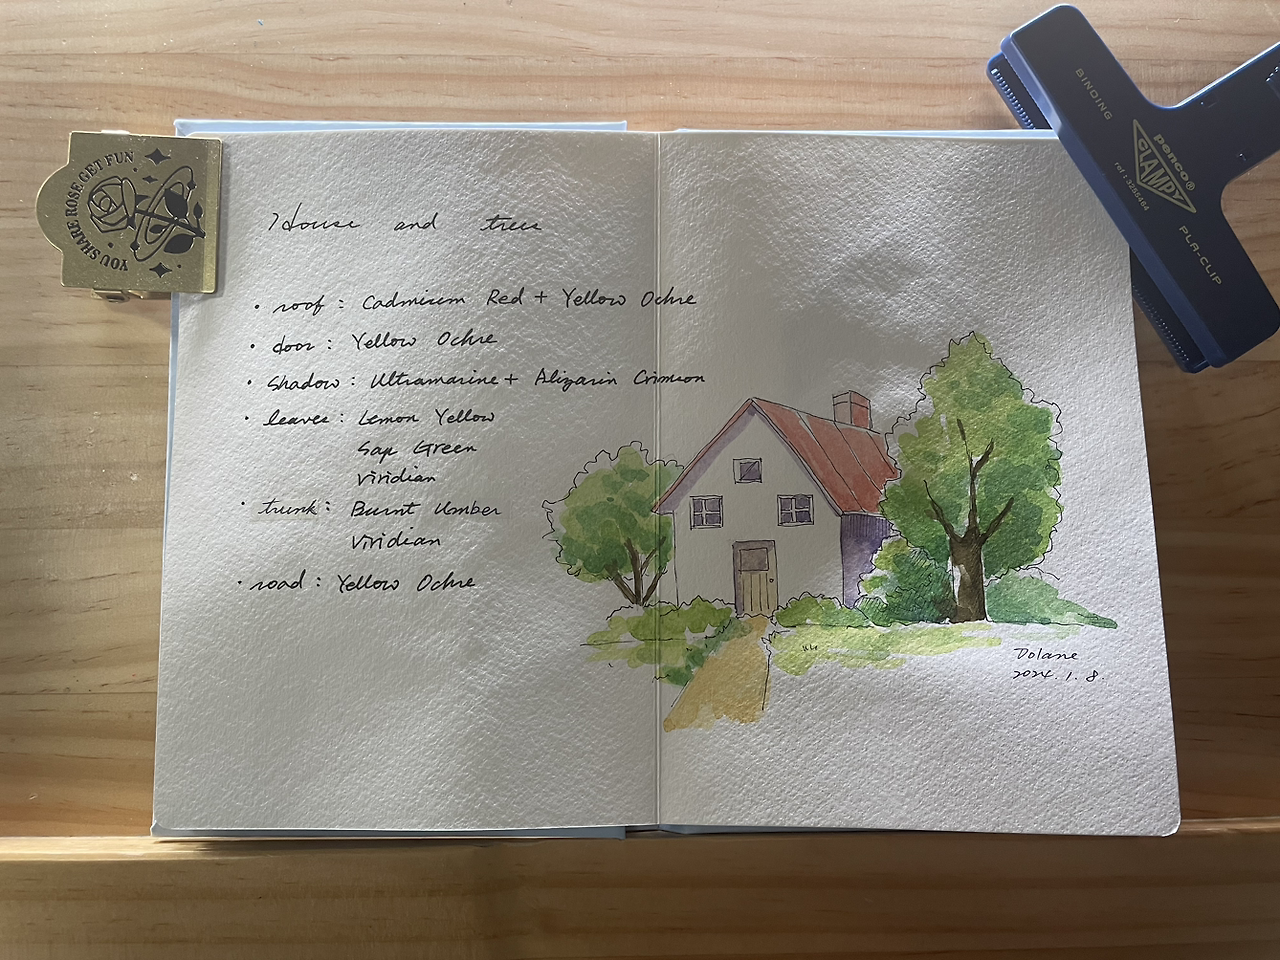 House and trees
• roof : Cadmium Red + Yellow Ochre
• door : Yellow Ochre
• shadow : Ultramarine + Alizarin Crimson
• leaves : Lemon Yellow
Sap Green
viridian
• trunk : Burnt Umber
viridian
• road : Yellow Ochre
Dolane
2024. 1. 8.
YOU SHARE ROSE.GET FUN
BINDING
penco®
CLAMPY
ref : 3255464
PLA-CLIP